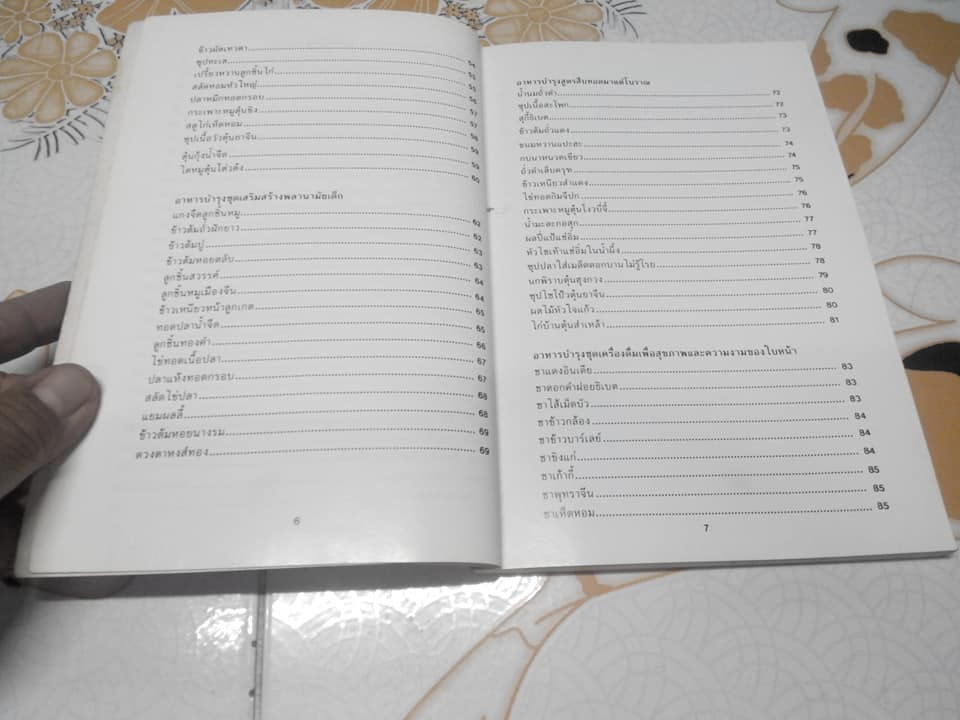 ข้าวผัดเทวดา
ซุปทะเล 54
เปรี้ยวหวานลูกชิ้นไก่ 55
สลัดหอมหัวใหญ่ 55
ปลาหมึกทอดกรอบ 56
กระเพาะหมูตุ๋นขิง 57
สตูไก่เห็ดหอม 57
ซุปเนื้อวัวตุ๋นยาจีน 58
ตุ๋นกุ้งน้ำจืด 59
ไตหมูตุ๋นโต่วต๋ง 59
60
อาหารบำรุงชุดเสริมสร้างพลานามัยเด็ก
แกงจืดลูกชิ้นหมู 62
ข้าวต้มถั่วฝักยาว 62
ข้าวต้มปู 63
ข้าวต้มหอยตลับ 63
ลูกชิ้นสวรรค์ 64
ลูกชิ้นหมูเมืองจีน 64
ข้าวเหนียวหน้าลูกเกด 65
ทอดปลาน้ำจืด 65
ลูกชิ้นทองคำ 66
ไข่ทอดเนื้อปลา 67
ปลาแห้งทอดกรอบ 67
สลัดไข่ปลา 68
แยมผลลี้ 68
ข้าวต้มหอยนางรม 69
ดวงตาหงส์ทอง 69
6
อาหารบำรุงสูตรสืบทอดมาแต่โบราณ
น้ำนมถั่วดำ 72
ซุปเนื้อสะโพก 72
สุกี้ธิเบต 73
ข้าวต้มถั่วแดง 73
ขนมหวานแปะฮะ 74
กบนาหนวดเขียว 74
ถั่วดำเล็บครุฑ 75
ข้าวเหนียวสำแดง 75
ไข่ทอดกิมจีปก 76
กระเพาะหมูตุ๋นโงวบี่จี้ 76
น้ำมะละกอสุก 77
ผลปี่แป๋แช่อิ่ม 77
หัวไชเท้าแช่อิ่มในน้ำผึ้ง 78
ซุปปลาใส่เมล็ดดอกบานไม่รู้โรย 78
นกพิราบตุ๋นฮุงกวง 79
ซุปไชโป๊วตุ๋นยาจีน 80
ผลไม้หัวใจแก้ว 80
ไก่บ้านตุ๋นสำเหล้า 81
อาหารบำรุงชุดเครื่องดื่มเพื่อสุขภาพและความงามของใบหน้า
ชาแดงอินเดีย 83
ชาดอกคำฝอยธิเบต 83
ชาไส้เม็ดบัว 83
ชาข้าวกล้อง 84
ชาข้าวบาร์เลย์ 84
ชาขิงแก่ 84
ชาเก้ากี้ 85
ชาพุทราจีน 85
ชาเห็ดหอม 85
7